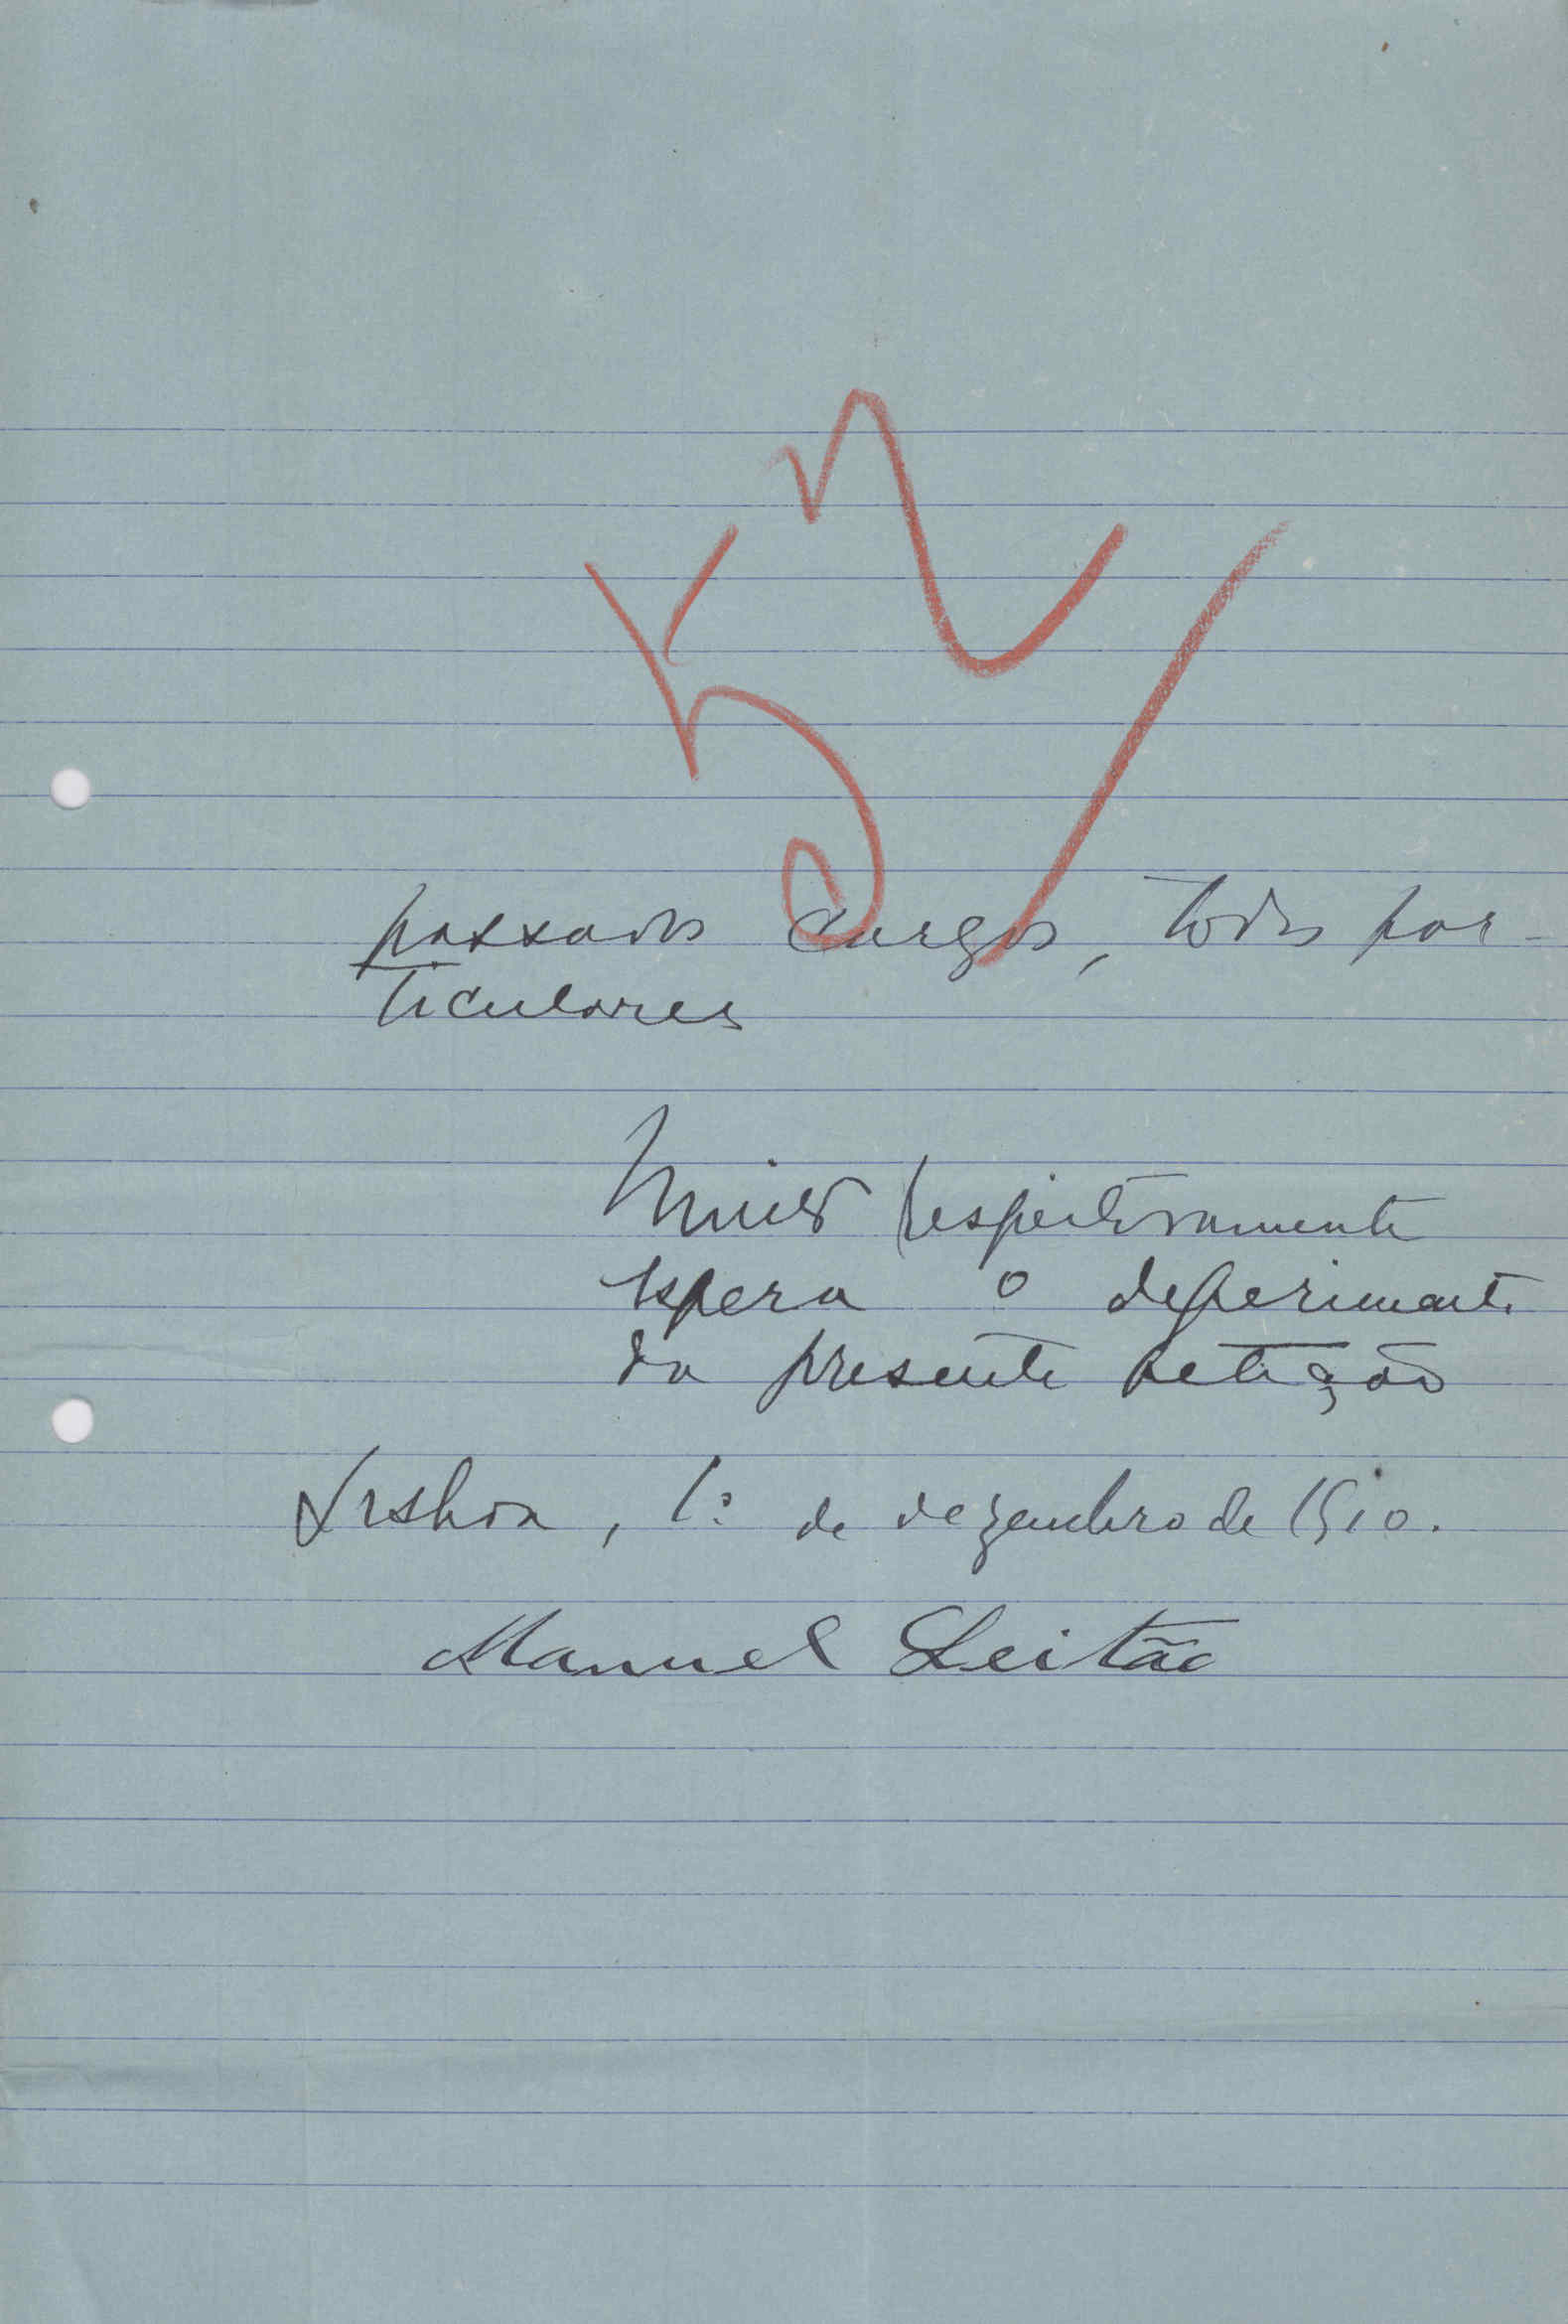 passados cargos, todos par-
ticulares
Muito respeitosamente
espera o deferimento
da presente petição
Lisboa, 1º de dezembro de 1910.
Manuel Leitão